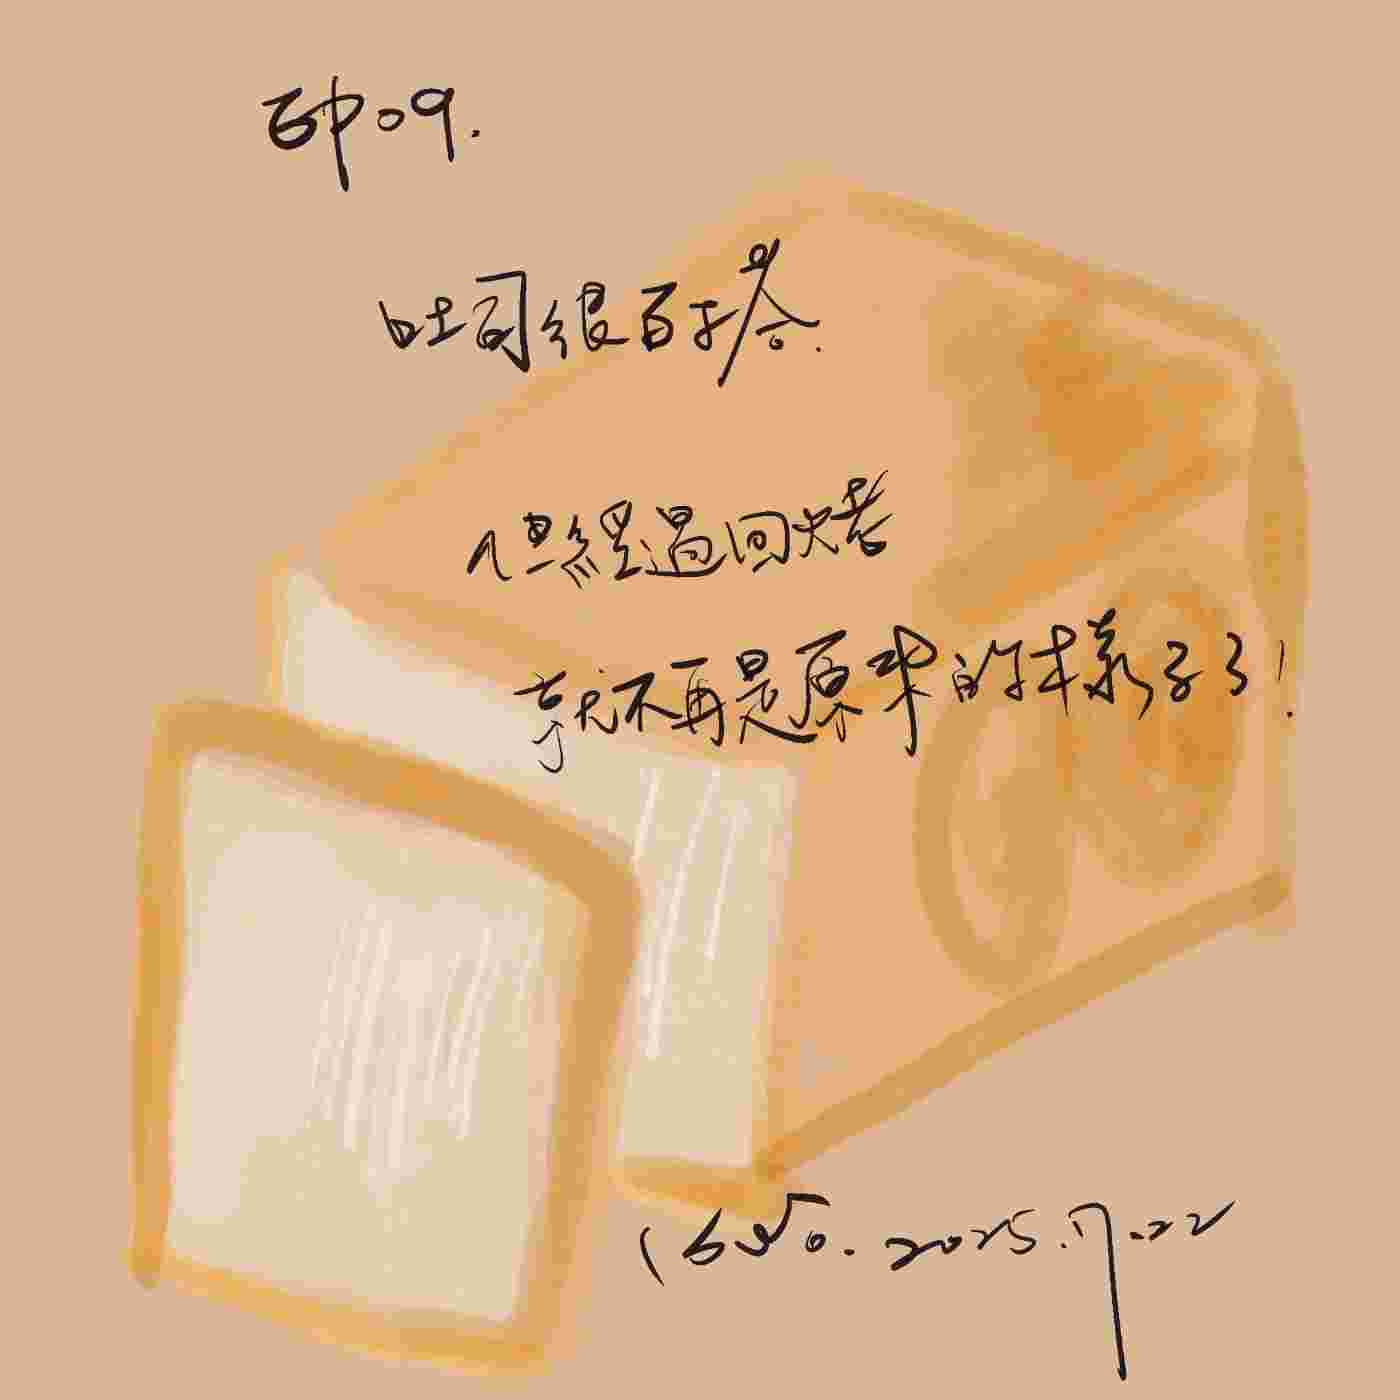 EP09.
吐司很百搭.
但經過回烤
就不再是原來的樣子了!
2025.7.22